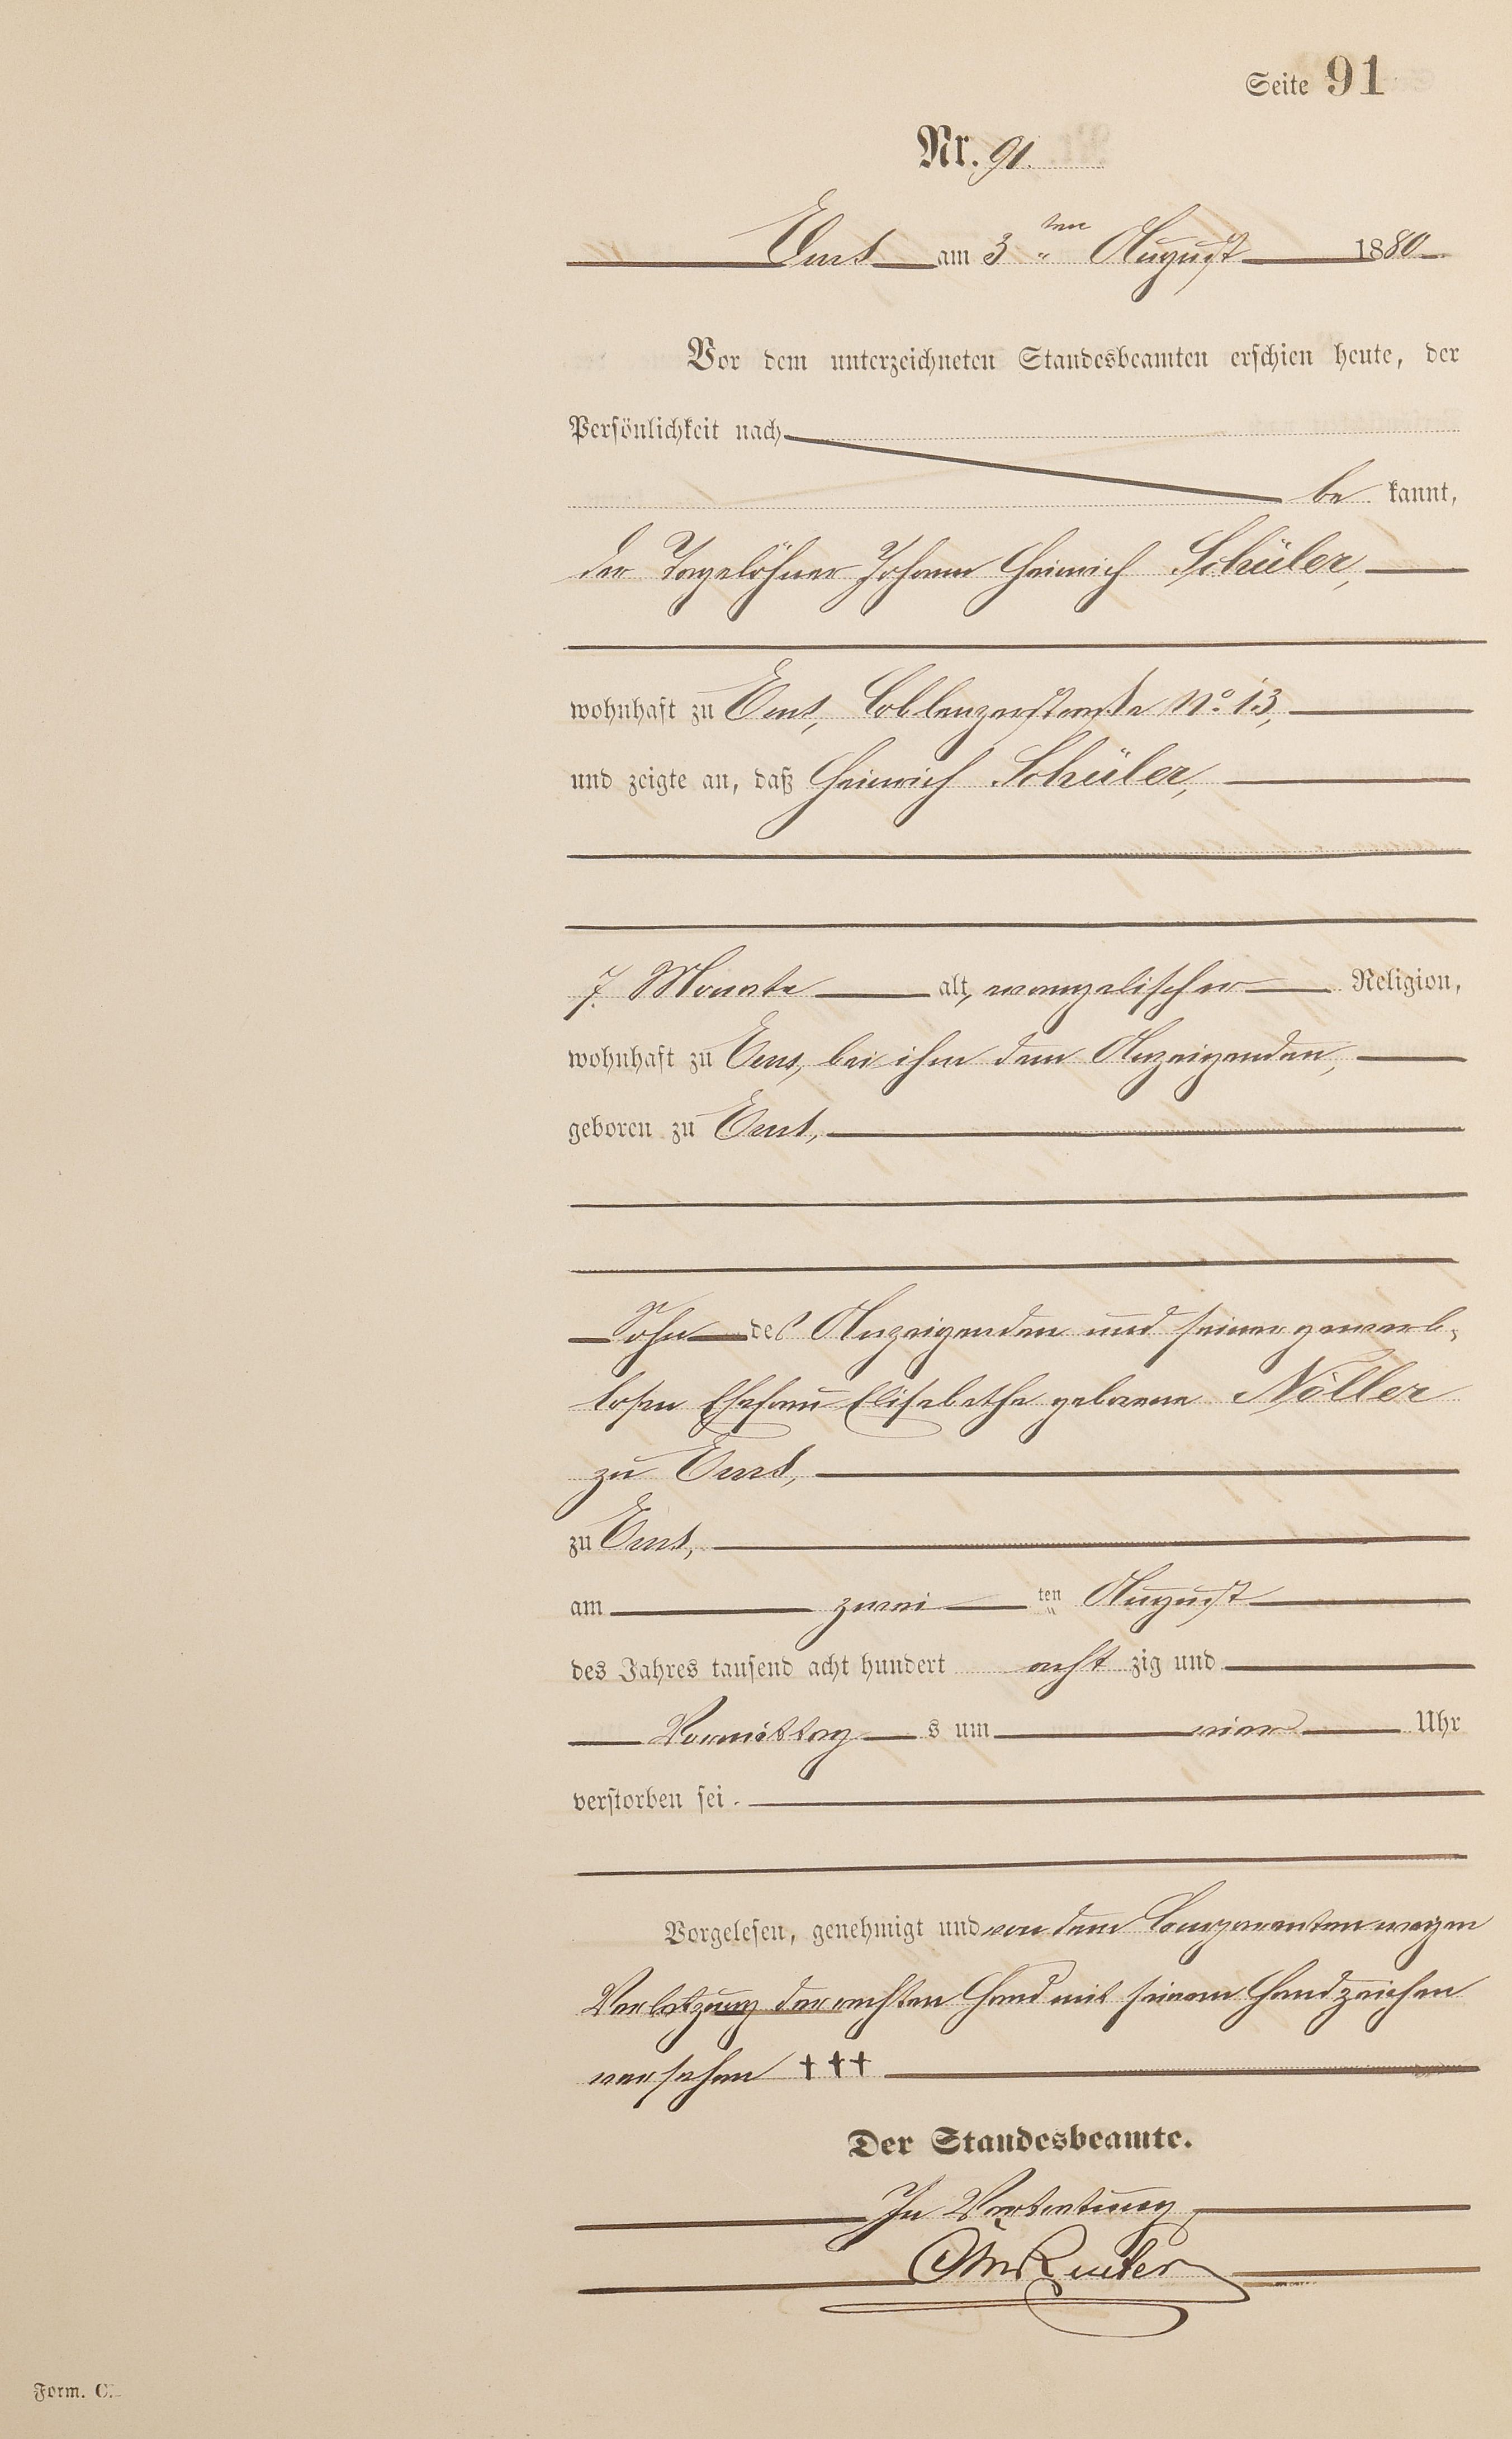 Seite 91
Nr. 91.
Ems am 3 ten August 1880
Vor dem unterzeichneten Standesbeamten erschien heute, der
Persönlichkeit nach
be kannt,
der Tagelöhner Johann Heinrich Schüler,
wohnhaft zu Ems, Coblenzerstraße No. 13,
und zeigte an, daß Heinrich Schüler,
7 Monate alt, evangelischer Religion,
wohnhaft zu Ems, bei ihm dem Anzeigenden,
geboren zu Ems,
Sohn des Anzeigenden und seiner gewerb-
losen Ehefrau Elisabethe geborene Nöller
zu Ems,
zu Ems,
am zwei ten August
des Jahres tausend acht hundert acht zig und
Vormittag s um vier Uhr
verstorben sei.
Vorgelesen, genehmigt und von dem Comparenten wegen
Verletzung der rechten Hand mit seinem Handzeichen
versehen †††
Der Standesbeamte.
In Vertretung
Reuter
Form. C.